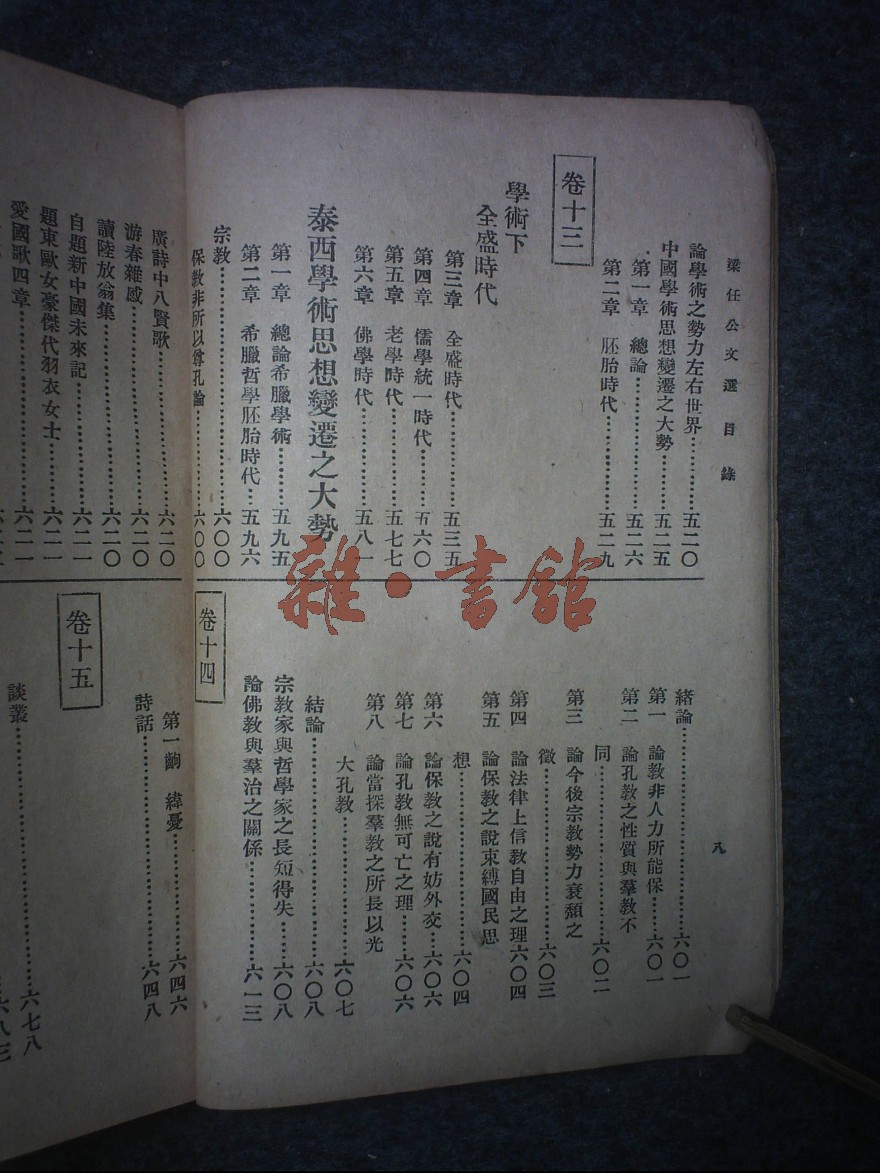 梁任公文選目錄
八
論學術之勢力左右世界…………五二〇
中國學術思想變遷之大勢…………五二五
第一章 總論…………五二六
第二章 胚胎時代…………五二九
卷十三
學術下
全盛時代
第三章 全盛時代…………五三五
第四章 儒學統一時代…………五六〇
第五章 老學時代…………五七七
第六章 佛學時代…………五八一
泰西學術思想變遷之大勢
第一章 總論希臘學術…………五九五
第二章 希臘哲學胚胎時代…五九六
宗教…………六〇〇
保教非所以尊孔論…………六〇〇
緒論…………六〇一
第一 論教非人力所能保……六〇一
第二 論孔教之性質與羣教不
同…………六〇二
第三 論今後宗教勢力衰頹之
徵…………六〇三
第四 論法律上信教自由之理六〇四
第五 論保教之說束縛國民思
想…………六〇四
第六 論保教之說有妨外交…六〇六
第七 論孔教無可亡之理……六〇六
第八 論當採羣教之所長以光
大孔教…………六〇七
結論…………六〇八
宗教家與哲學家之長短得失……六〇八
論佛教與羣治之關係…………六一三
卷十四
廣詩中八賢歌…………六二〇
游春雜感…………六二〇
讀陸放翁集…………六二〇
自題新中國未來記…………六二一
題東歐女豪傑代羽衣女士……六二一
愛國歌四章…………六二一
第一齣 緯憂…………六四六
詩話…………六四八
卷十五
談叢…………六七八
雜·書館